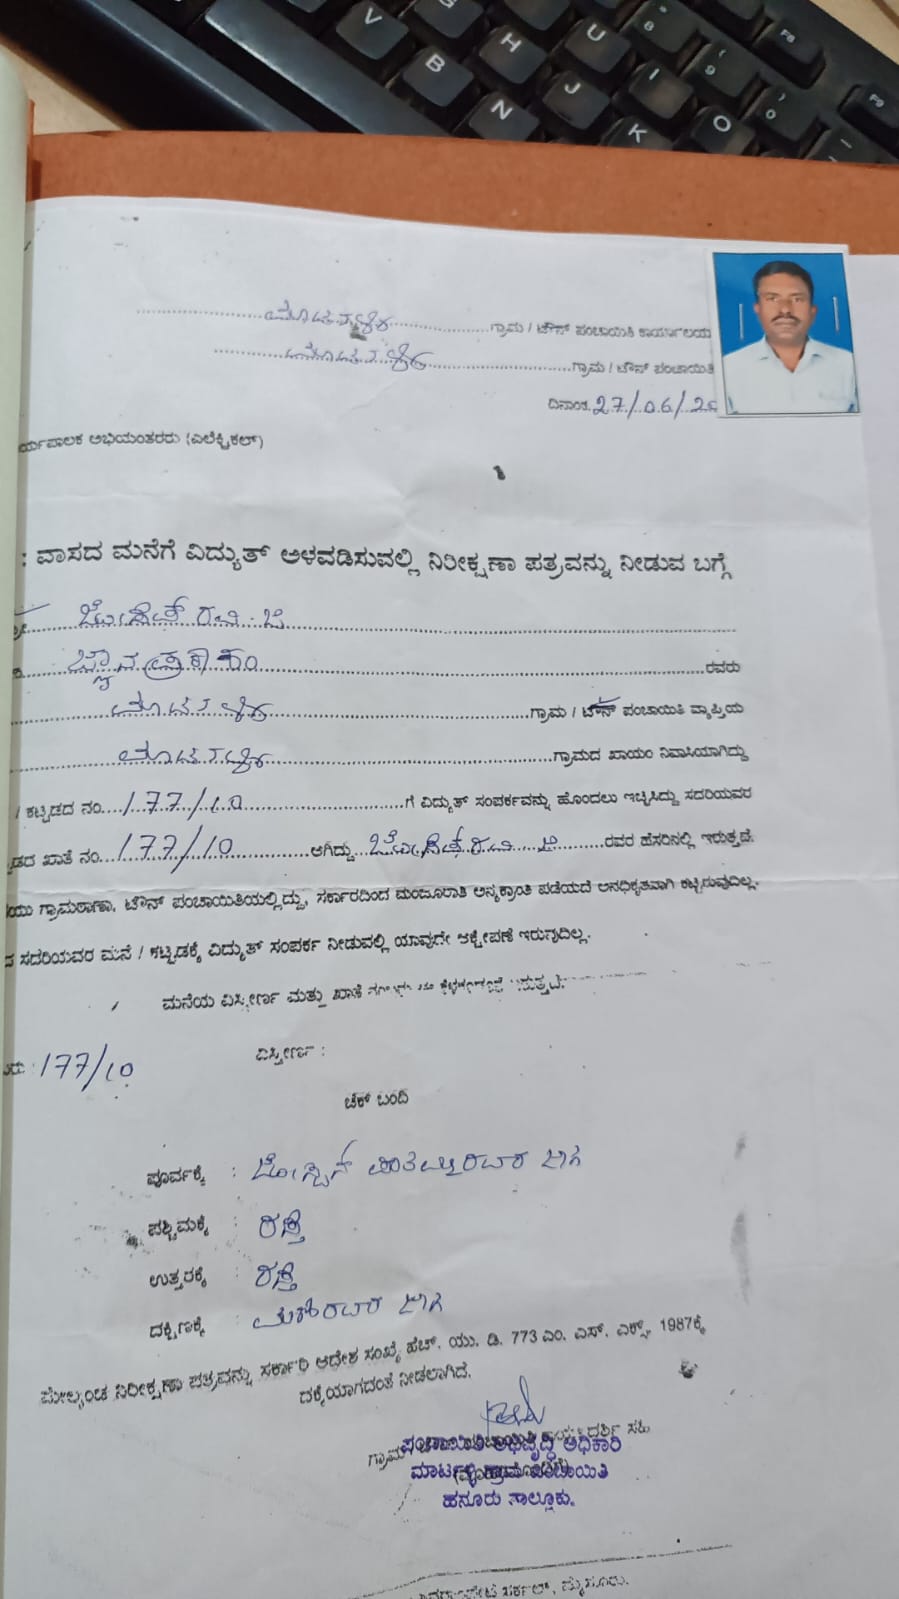 ಮಾರ್ಟಳ್ಳಿ ಗ್ರಾಮ / ಟೌನ್ ಪಂಚಾಯಿತಿ ಕಾರ್ಯಾಲಯ
ಮಾರ್ಟಳ್ಳಿ ಗ್ರಾಮ / ಟೌನ್ ಪಂಚಾಯಿತಿ
ದಿನಾಂಕ 27/06/20
ರ್ಯಪಾಲಕ ಅಭಿಯಂತರರು (ಎಲೆಕ್ಟ್ರಿಕಲ್)
: ವಾಸದ ಮನೆಗೆ ವಿದ್ಯುತ್ ಅಳವಡಿಸುವಲ್ಲಿ ನಿರೀಕ್ಷಣಾ ಪತ್ರವನ್ನು ನೀಡುವ ಬಗ್ಗೆ
ಜೋಸೆಫ್ ರವಿ. ಜೆ
ಜ್ಞಾನಪ್ರಕಾಶಂ ರವರು
ಮಾರ್ಟಳ್ಳಿ ಗ್ರಾಮ / ಟೌನ್ ಪಂಚಾಯಿತಿ ವ್ಯಾಪ್ತಿಯ
ಮಾರ್ಟಳ್ಳಿ ಗ್ರಾಮದ ಖಾಯಂ ನಿವಾಸಿಯಾಗಿದ್ದು
/ ಕಟ್ಟಡದ ನಂ. 177/10 ಗೆ ವಿದ್ಯುತ್ ಸಂಪರ್ಕವನ್ನು ಹೊಂದಲು ಇಚ್ಛಿಸಿದ್ದು ಸದರಿಯವರ
ಡದ ಖಾತೆ ನಂ. 177/10 ಆಗಿದ್ದು ಜೋಸೆಫ್ ರವಿ ಜೆ ರವರ ಹೆಸರಿನಲ್ಲಿ ಇರುತ್ತದೆ.
ಯು ಗ್ರಾಮಠಾಣಾ, ಟೌನ್ ಪಂಚಾಯಿತಿಯಲ್ಲಿದ್ದು, ಸರ್ಕಾರದಿಂದ ಮಂಜೂರಾತಿ ಅನ್ಯಕ್ರಾಂತಿ ಪಡೆಯದೆ ಅನಧಿಕೃತವಾಗಿ ಕಟ್ಟಿರುವುದಿಲ್ಲ.
ಸದರಿಯವರ ಮನೆ / ಕಟ್ಟಡಕ್ಕೆ ವಿದ್ಯುತ್ ಸಂಪರ್ಕ ನೀಡುವಲ್ಲಿ ಯಾವುದೇ ಆಕ್ಷೇಪಣೆ ಇರುವುದಿಲ್ಲ.
ಮನೆಯ ವಿಸ್ತೀರ್ಣ ಮತ್ತು ಖಾತೆ ಇರುತ್ತದೆ.
177/10 ವಿಸ್ತೀರ್ಣ :
ಚೆಕ್ ಬಂದಿ
ಪೂರ್ವಕ್ಕೆ : ಜಾಗ
ಪಶ್ಚಿಮಕ್ಕೆ : ರಸ್ತೆ
ಉತ್ತರಕ್ಕೆ : ರಸ್ತೆ
ದಕ್ಷಿಣಕ್ಕೆ : ಜಾಗ
ಮೇಲ್ಕಂಡ ನಿರೀಕ್ಷಣಾ ಪತ್ರವನ್ನು ಸರ್ಕಾರಿ ಆದೇಶ ಸಂಖ್ಯೆ ಹೆಚ್. ಯು. ಡಿ. 773 ಎಂ. ಎಸ್. ಎಕ್ಸ್. 1987ಕ್ಕೆ
ದಕ್ಕೆಯಾಗದಂತೆ ನೀಡಲಾಗಿದೆ.
ಪಂಚಾಯಿತಿ ಅಭಿವೃದ್ಧಿ ಅಧಿಕಾರಿ
ಮಾರ್ಟಳ್ಳಿ ಗ್ರಾಮ ಪಂಚಾಯಿತಿ
ಹನೂರು ತಾಲ್ಲೂಕು.
ಸರ್ಕಲ್, ಮೈಸೂರು.